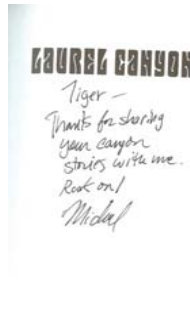 LAUREL CANYON
Tiger —
Thanks for sharing
your canyon
stories with me.
Rock on!
Michael